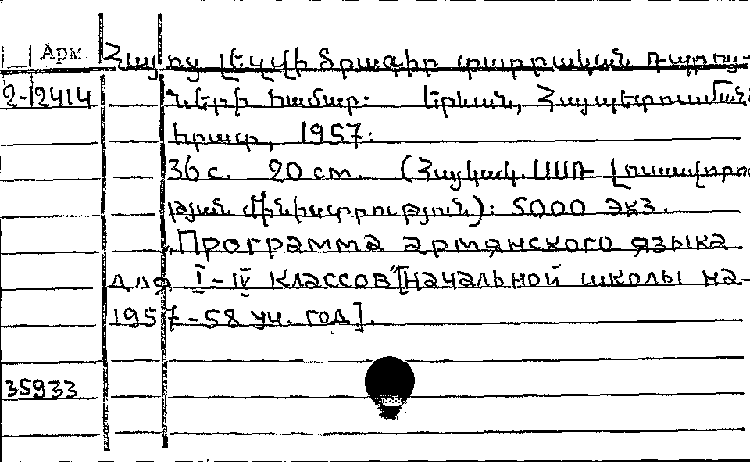 Арм. Հայոց լեզվի ծրագիր տարրական դպրոց-
2-12414 ների համար: Երևան, Հայպետուսման-
հրատ, 1957:
36 с. 20 см. (Հայկակ. ՍՍՌ Լուսավորու-
թյան մինիստրություն): 5000 экз.
"Программа армянского языка
для I-IV классов" [начальной школы на-
1957-58 уч. год].
35933